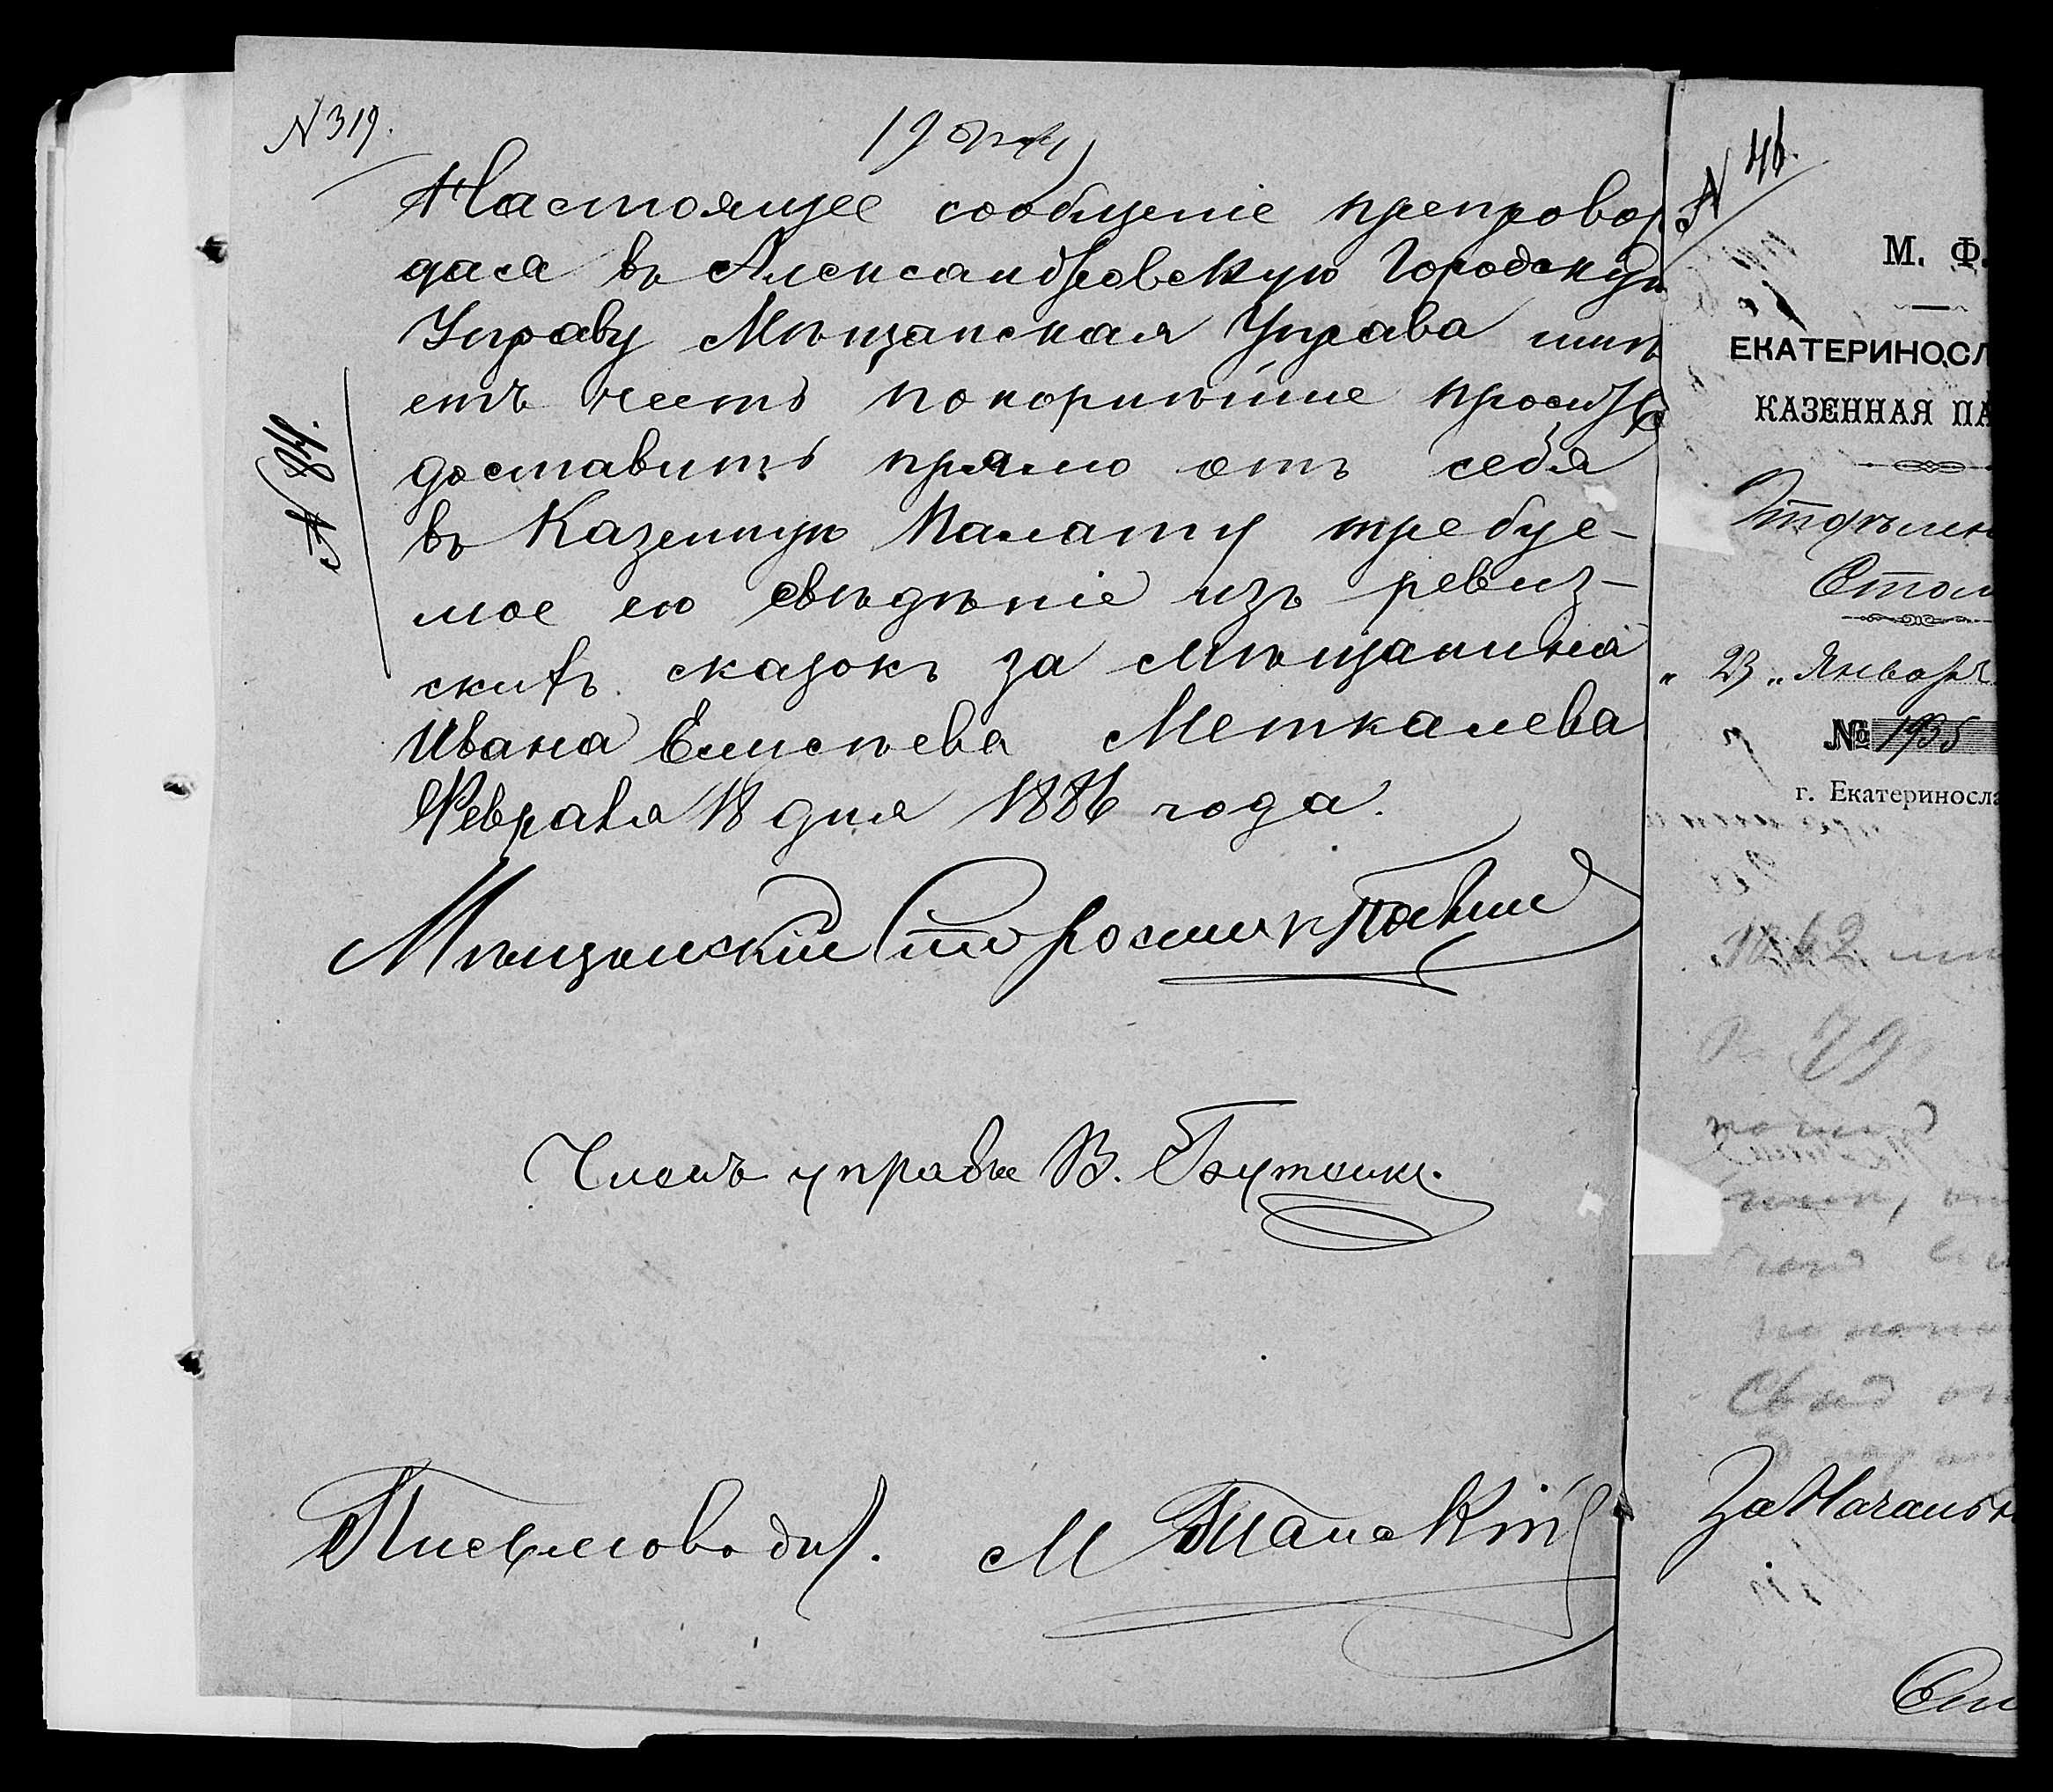 N 319.
19 Фев
Настоящее сообщеніе препровож
дая въ Александровскую Городскую
Управу Мѣщанская Управа имѣ
етъ честь покорнѣйше просить
доставить прямо отъ себя
въ Казенную Палату требуе-
мое ею свѣдѣніе изъ ревиз-
скихъ сказокъ за мѣщанина
Ивана Елисѣева Меткалева
Февраля 18 дня 1886 года.
Мѣщанскій Староста
Членъ управы В. Бутенко.
Письмоводит.
М
N 84.
N 46.
М. Ф.
ЕКАТЕРИНОСЛ
КАЗЕННАЯ ПА
Отдѣлен
Стол
„ 23 „ Январ
№ 1935
г. Екатериносла
1862
79
За Начальн